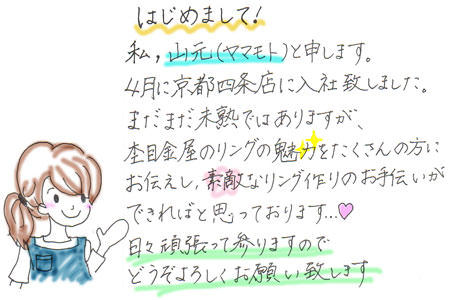 はじめまして!
私,山元(ヤマモト)と申します。
4月に京都四条店に入社致しました。
まだまだ未熟ではありますが、
杢目金屋のリングの魅力をたくさんの方に
お伝えし,素敵なリング作りのお手伝いが
できればと思っております...
日々頑張って参りますので
どうぞよろしくお願い致します